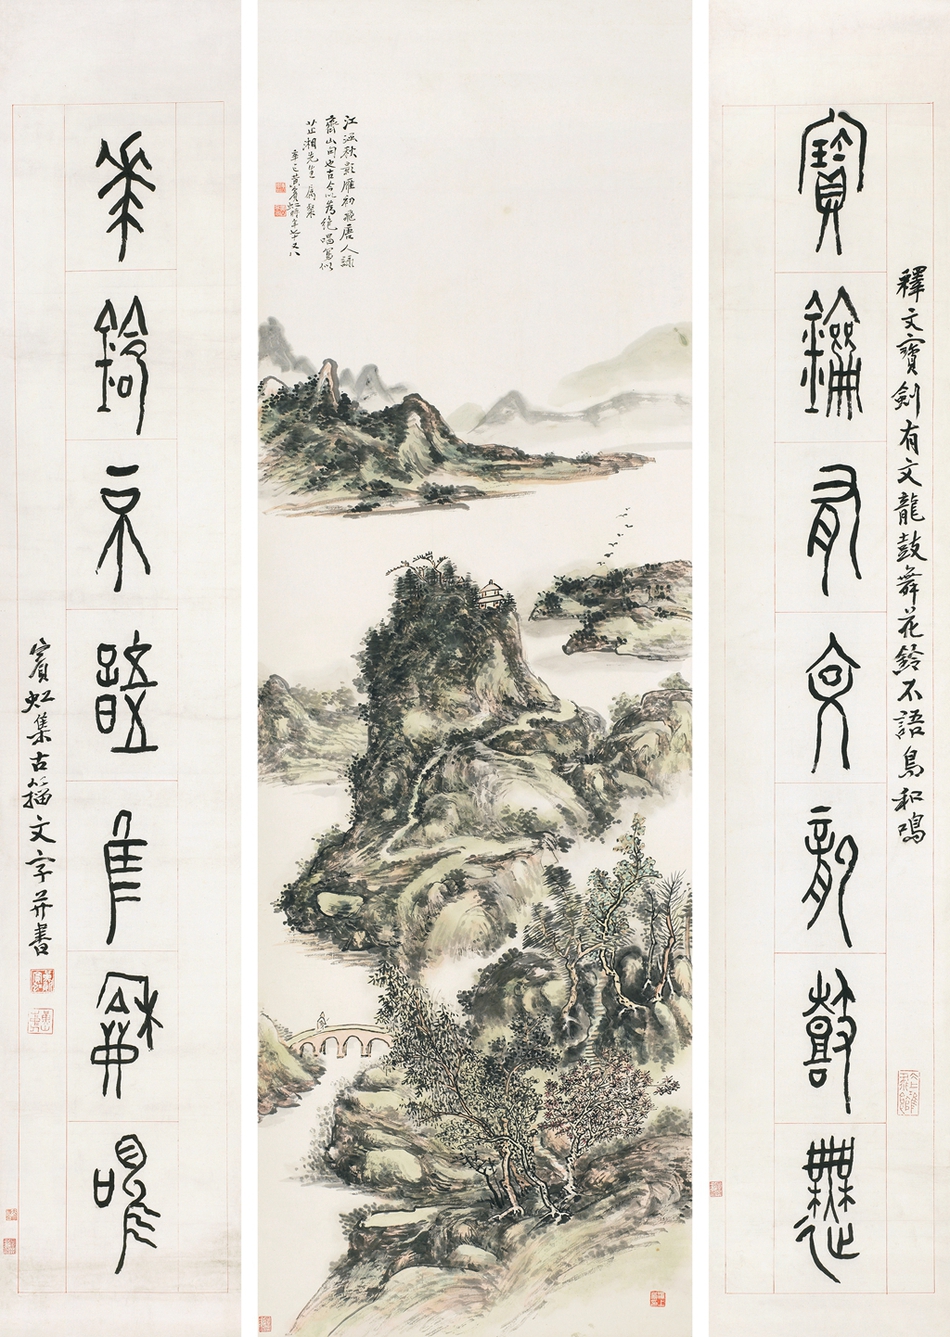 釋文寶劍有文龍鼓舞花鈴不語鳥和鳴
寶鐱有文龍鼓舞
江涵秋影雁初飛唐人詠
齊山句也古今以為絕唱寫似
芷湘先生屬粲
辛巳黃賓虹時年七十又八
華鈴不語隹龢鳴
賓虹集古籀文字并書